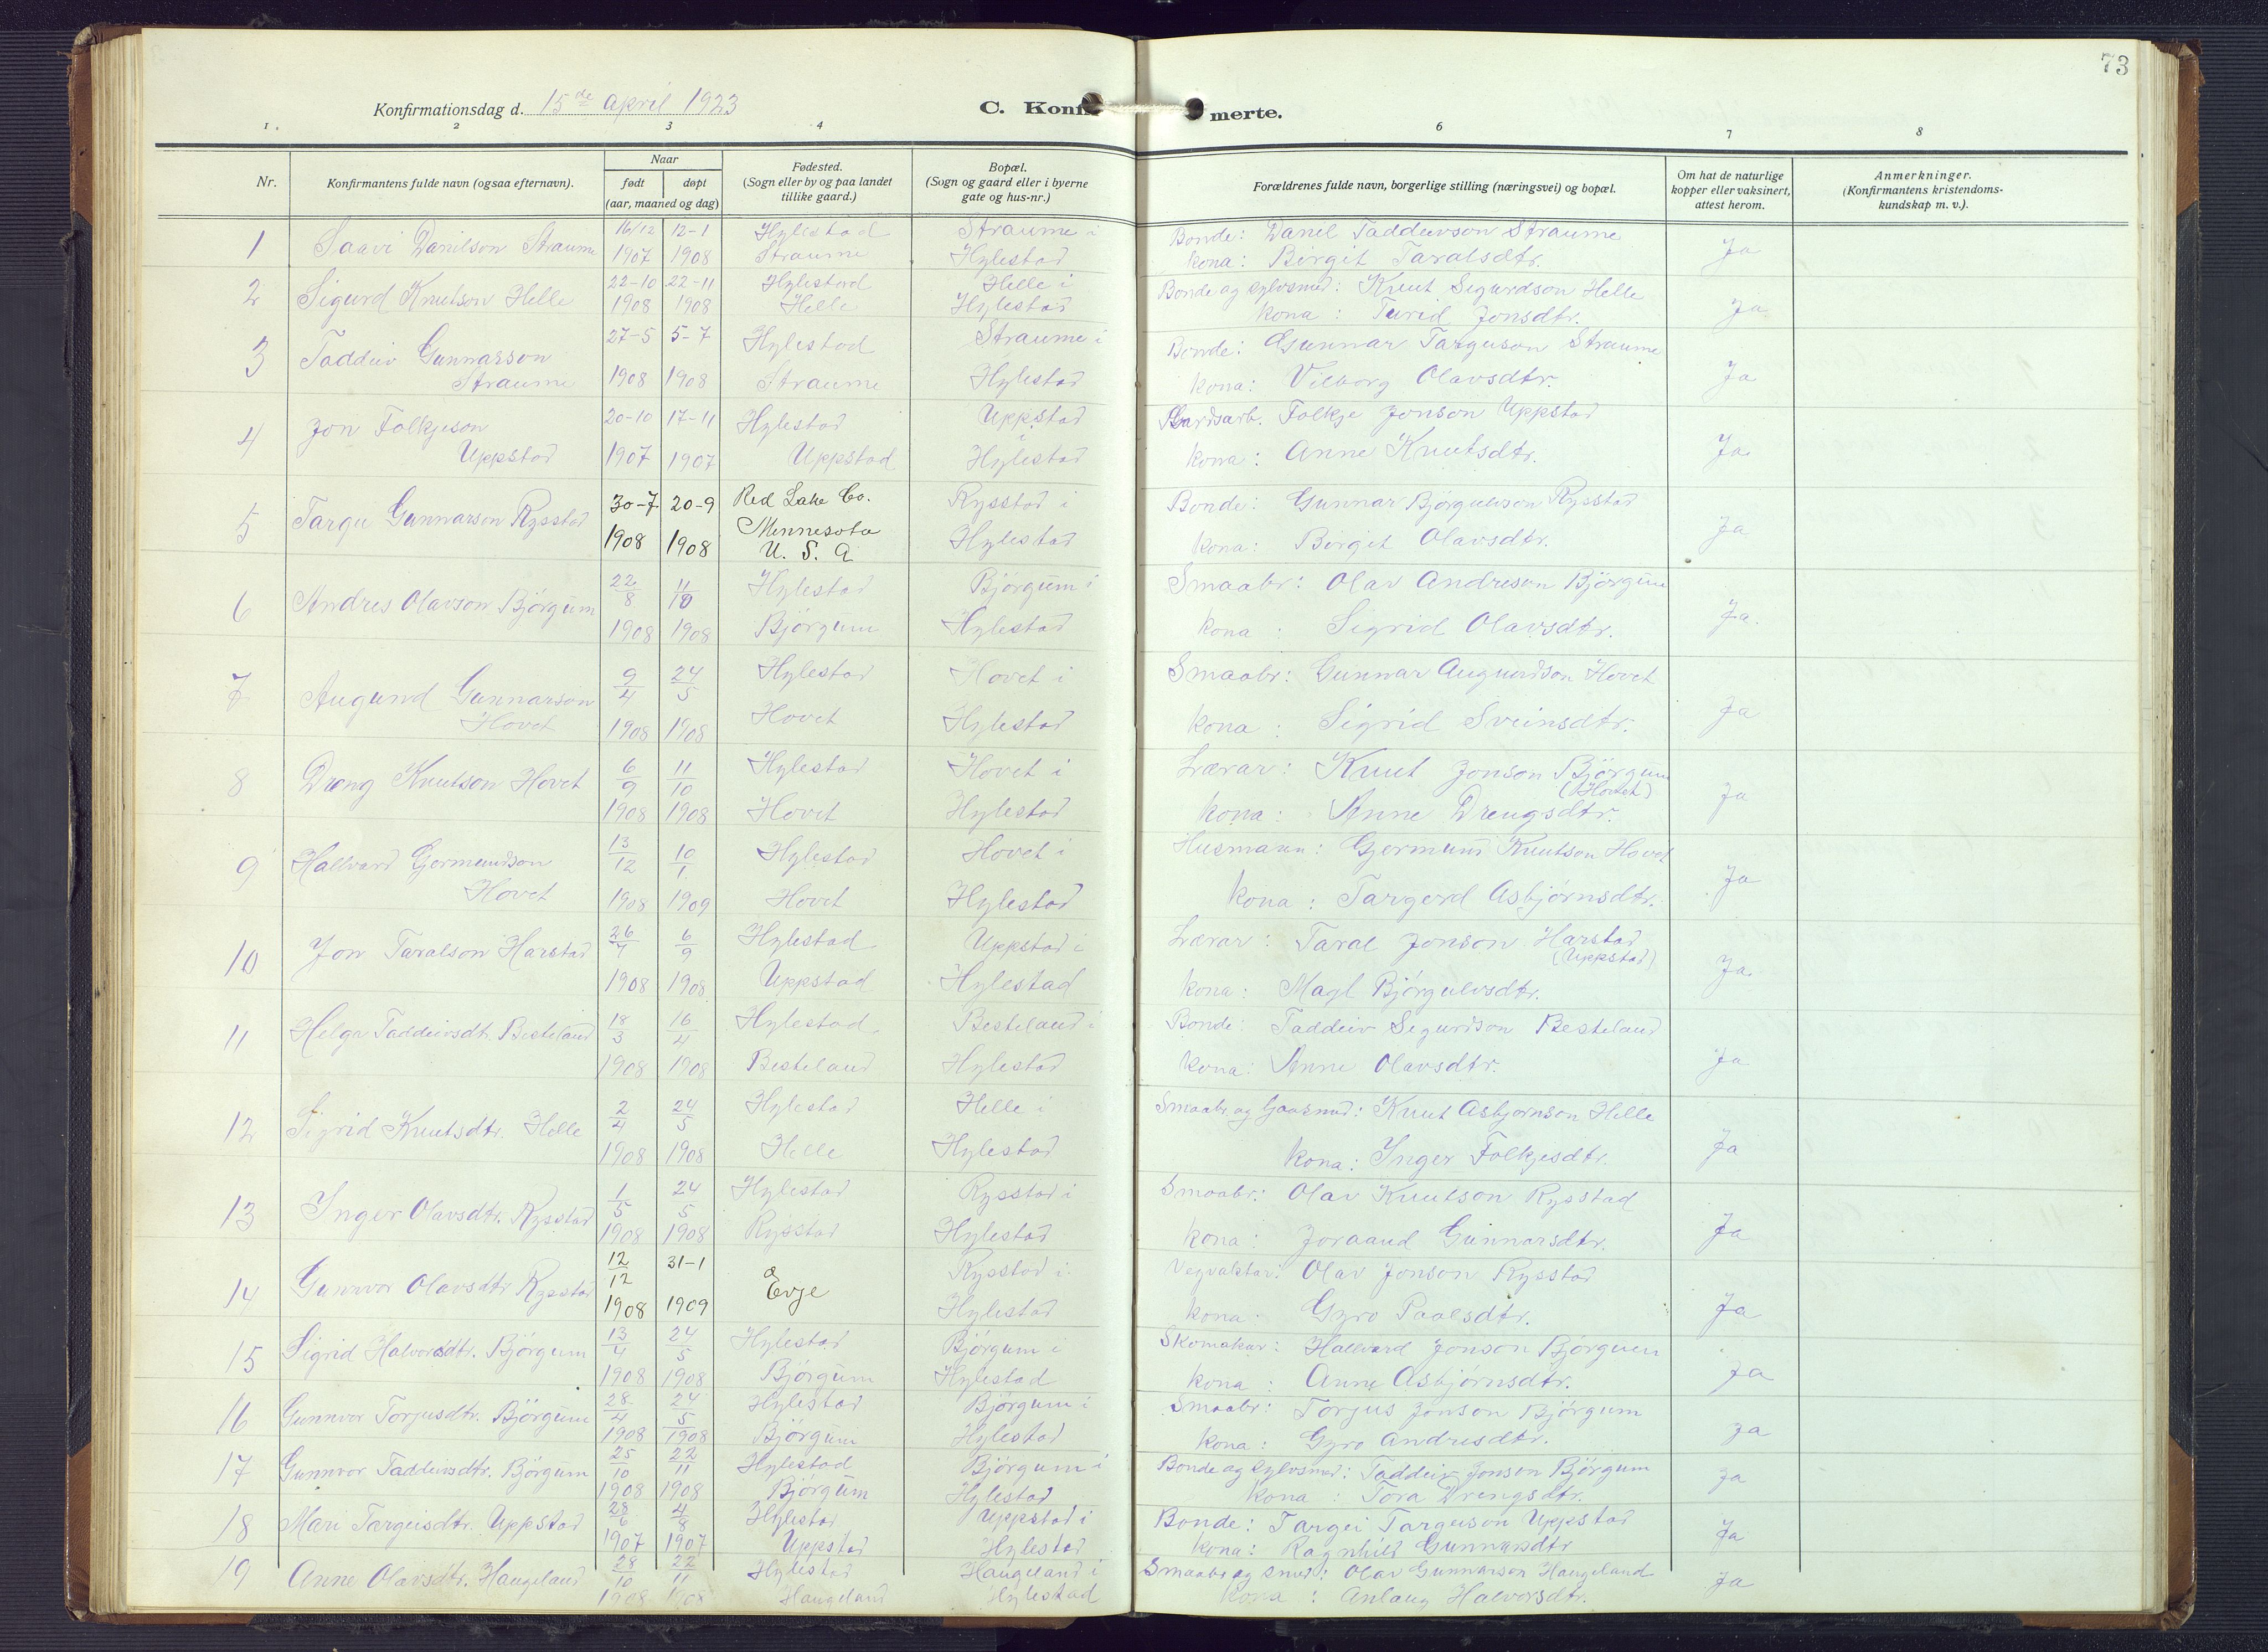 73
Konfirmationsdag d. 15de april 1923
C. Konfirmerte.
1 2 3 4 6 7 8
Nr.
Konfirmantens fulde navn (ogsaa efternavn).
Naar
født døpt
(aar, maaned og dag)
Fødested.
(Sogn eller by og paa landet
tillike gaard.)
Bopæl.
(Sogn og gaard eller i byerne
gate og hus-nr.)
Forældrenes fulde navn, borgerlige stilling (næringsvei) og bopæl.
Om hat de naturlige
kopper eller vaksinert,
attest herom.
Anmerkninger.
(Konfirmantens kristendoms-
kundskap m. v.).
1 Saavi Danilson Straume 16/12 12-1 Hylestad Straume i Bonde: Danil Taddeivson Straume Ja
1907 1908 Straume Hylestad kona: Birgit Taralsdtr.
2 Sigurd Knutson Helle 22-10 22-11 Hylestad Helle i Bonde og sylvsmed: Knut Sigurdson Helle Ja
1908 1908 Helle Hylestad kona: Turid Jonsdtr.
3 Taddeiv Gunnarson 27-5 5-7 Hylestad Straume i Bonde: Gunnar Targeison Straume
Straume 1908 1908 Straume Hylestad kona: Vilborg Olavsdtr. Ja
4 Jon Folkjeson 20-10 17-11 Hylestad Uppstad i Gardsarb. Folkje Jonson Uppstad
Uppstad 1907 1907 Uppstad Hylestad kona: Anne Knutsdtr. Ja
5 Targei Gunnarson Rysstad 30-7 20-9 Red Lake Co. Rysstad i Bonde: Gunnar Bjørgulvson Rysstad
1908 1908 Minnesota Hylestad kona: Birgit Olavsdtr. Ja
U. S. A
6 Andres Olavson Bjørgum 22/8 11/10 Hylestad Bjørgum i Smaabr: Olav Andreson Bjørgum
1908 1908 Bjørgum Hylestad kona: Sigrid Olavsdtr. Ja.
7 Augund Gunnarson 9/4 24/5 Hylestad Hovet i Smaabr: Gunnar Augundson Hovet
Hovet 1908 1908 Hovet Hylestad kona: Sigrid Sveinsdtr. Ja
8 Dreng Knutson Hovet 6/9 11/10 Hylestad Hovet i Lærar: Knut Jonson Bjørgum
(Hovet) Ja
1908 1908 Hovet Hylestad kona: Anne Drengsdtr.
9 Hallvard Gjermundson 13/12 10/1 Hylestad Hovet i Husmann: Gjermund Knutson Hovet
Hovet 1908 1909 Hovet Hylestad kona: Targerd Asbjørnsdtr. Ja
10 Jon Taralson Harstad 26/7 6/9 Hylestad Uppstad i Lærar: Taral Jonson Harstad
(Uppstad)
1908 1908 Uppstad Hylestad kona: Magl Bjørgulvsdtr. Ja
11 Helga Taddeivsdt. Besteland 18/3 16/4 Hylestad Besteland i Bonde: Taddeiv Sigurdson Besteland
1908 1908 Besteland Hylestad kona: Anne Olavsdtr. Ja
12 Sigrid Knutsdtr. Helle 2/4 24/5 Hylestad Helle i Smaabr og Knut Asbjørnson Helle
1908 1908 Helle Hylestad kona: Inger Folkjesdtr. Ja
13 Inger Olavsdtr. Rysstad 1/5 24/5 Hylestad Rysstad i Smaabr.: Olav Knutson Rysstad
1908 1908 Rysstad Hylestad kona: Joraand Gunnarsdtr. Ja
14 Gunnvor Olavsdtr Rysstad 12/12 31-1 Evje Rysstad i Vegvaktar: Olav Jonson Rysstad
1908 1909 Hylestad kona: Gyro Paalsdtr. Ja
15 Sigrid Halvorsdtr. Bjørgum 13/4 24/5 Hylestad Bjørgum i Skomakar: Hallvard Jonson Bjørgum
1908 1908 Bjørgum Hylestad kona: Anne Asbjørnsdtr. Ja
16 Gunnvor Torjusdtr. Bjørgum 28/4 24/5 Hylestad Bjørgum i Smaabr: Torjus Jonson Bjørgum
1908 1908 Bjørgum Hylestad kona: Gyro Andresdtr. Ja
17 Gunnvor Taddeivsdtr. Bjørgum 25/10 22/11 Hylestad Bjørgum i Bonde og sylvsmed: Taddeiv Jonson Bjørgum
1908 1908 Bjørgum Hylestad kona: Tora Drengsdtr. Ja
18 Mari Targeisdtr. Uppstad 28/6 4/8 Hylestad Uppstad i Bonde: Targei Targeison Uppstad
1907 1907 Uppstad Hylestad kona: Ragnhild Gunnarsdtr Ja
19 Anne Olavsdtr. Haugeland 28/10 22/11 Hylestad Haugeland i Smaabr og smed: Olav Gunnarson Haugeland
1908 1908 Haugeland Hylestad kona: Anlaug Halvorsdtr. Ja